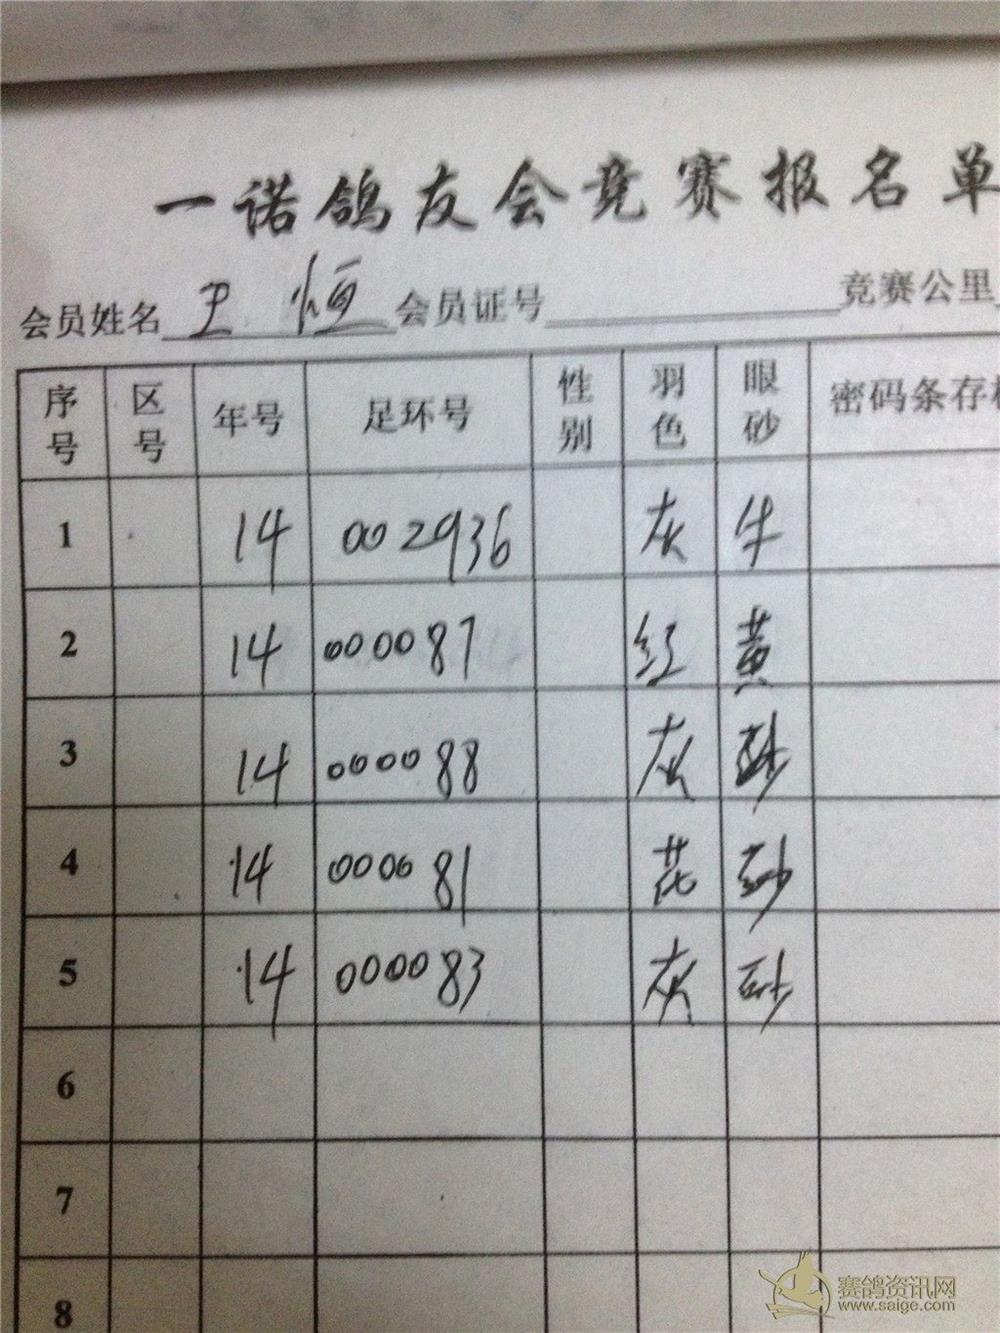 一诺鸽友会竞赛报名单
会员姓名 王恒 会员证号 竞赛公里
序号 区号 年号 足环号 性别 羽色 眼砂 密码条存
1 14 002936 灰 牛
2 14 000087 红 黄
3 14 000088 灰 砂
4 14 000081 花 砂
5 14 000083 灰 砂
6
7
8
赛鸽资讯网
www.saige.com